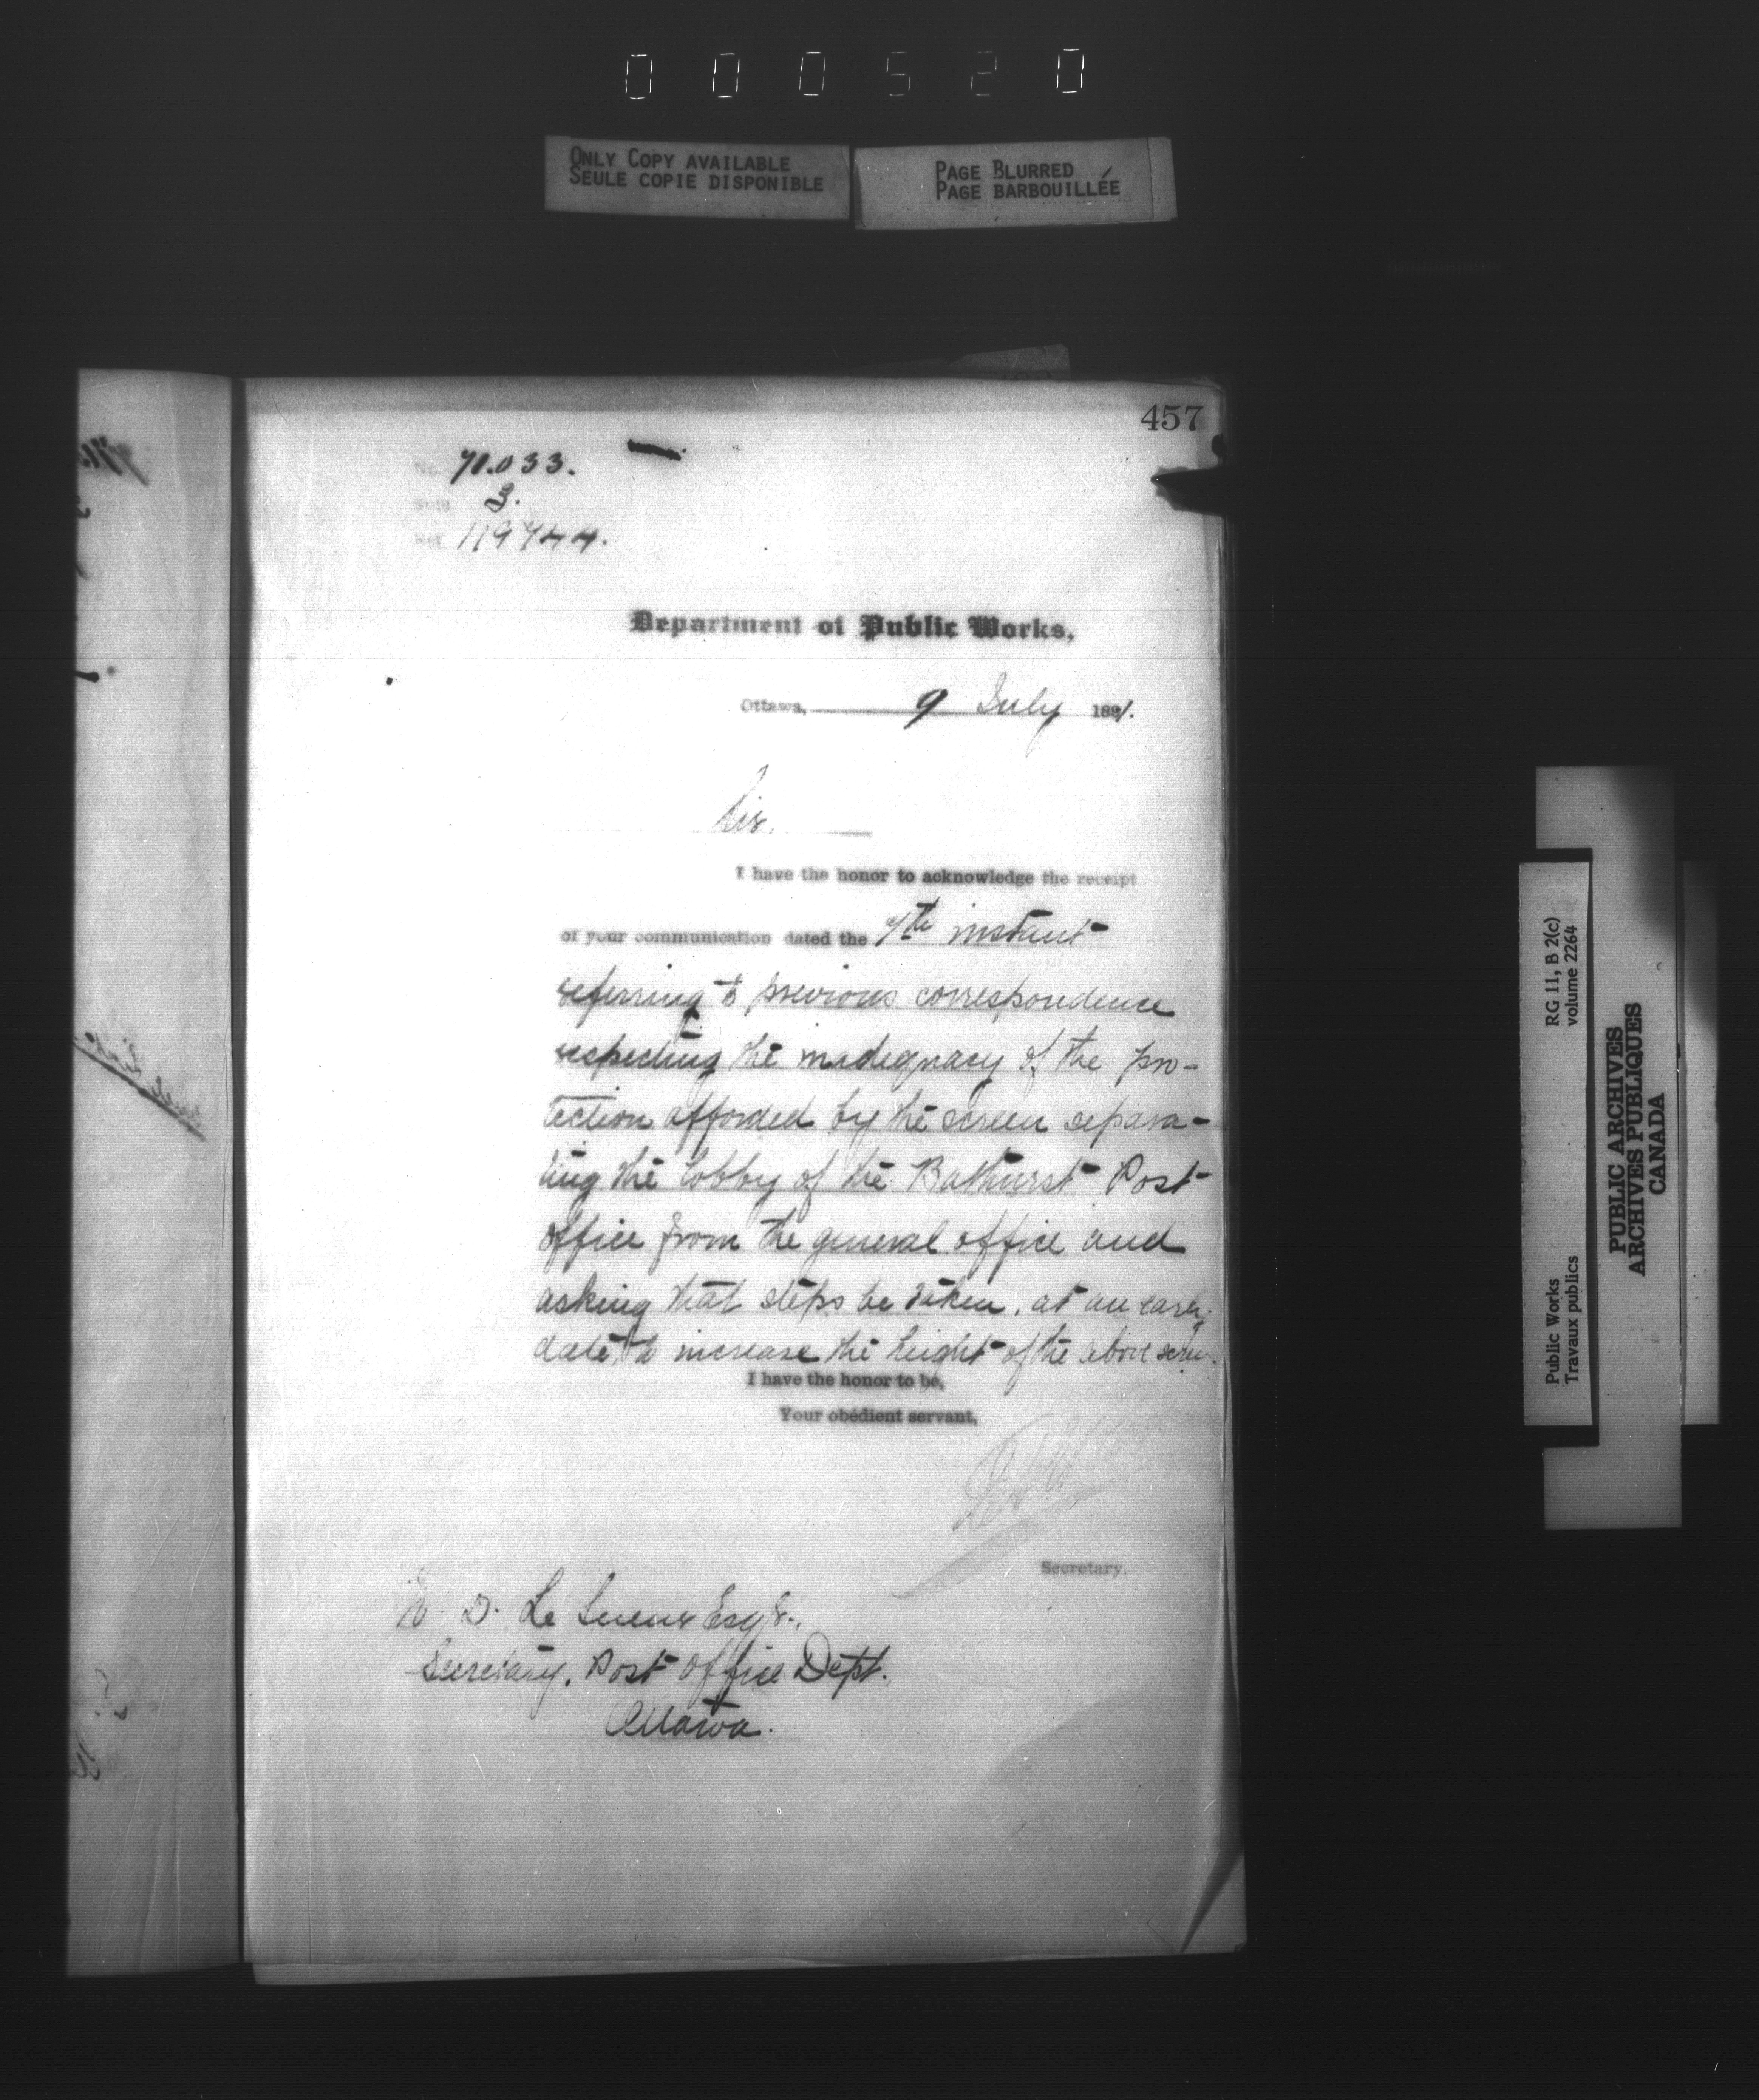 000520
ONLY COPY AVAILABLE
SEULE COPIE DISPONIBLE
PAGE BLURRED
PAGE BARBOUILLÉE
457
No. 71.033.
Subj. 3.
Ref. 119744.
Department of Public Works,
Ottawa, 9 July 1891.
Sir.
I have the honor to acknowledge the receipt
of your communication dated the 7th instant
referring to previous correspondence
respecting the inadequacy of the pro-
tection afforded by the screen separa-
ting the lobby of the Bathurst Post
office from the general office and
asking that steps be taken, at an early
date, to increase the height of the above screen.
I have the honor to be,
Your obedient servant,
Secretary.
W. D. Le Sueur Esqr.,
Secretary, Post Office Dept.
Ottawa.
RG 11, B 2(c)
volume 2264
Public Works
Travaux publics
PUBLIC ARCHIVES
ARCHIVES PUBLIQUES
CANADA